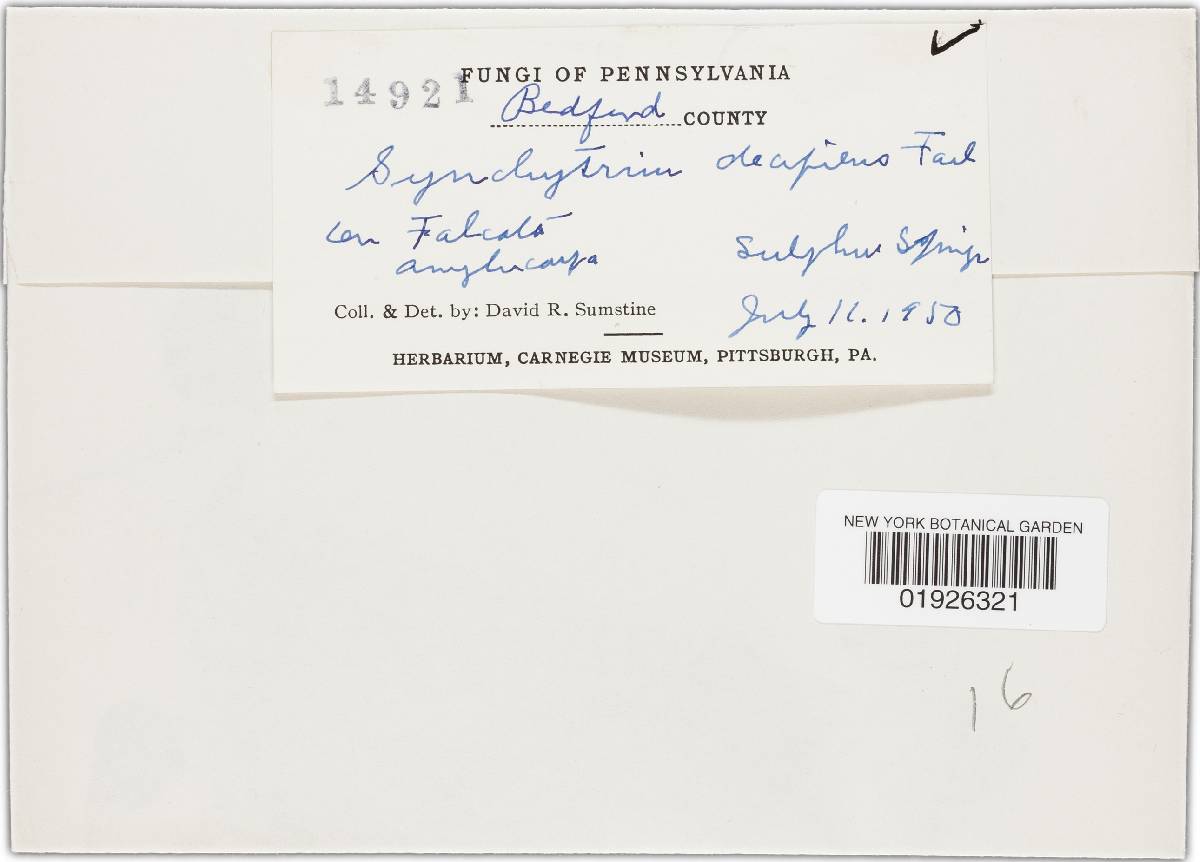 14921
FUNGI OF PENNSYLVANIA
Bedford COUNTY
Synchytrium decipiens Farl
on Falcata
Sulphur Springs
amphicarpa
Coll. & Det. by: David R. Sumstine
July 11. 1950
HERBARIUM, CARNEGIE MUSEUM, PITTSBURGH, PA.
NEW YORK BOTANICAL GARDEN
01926321
16